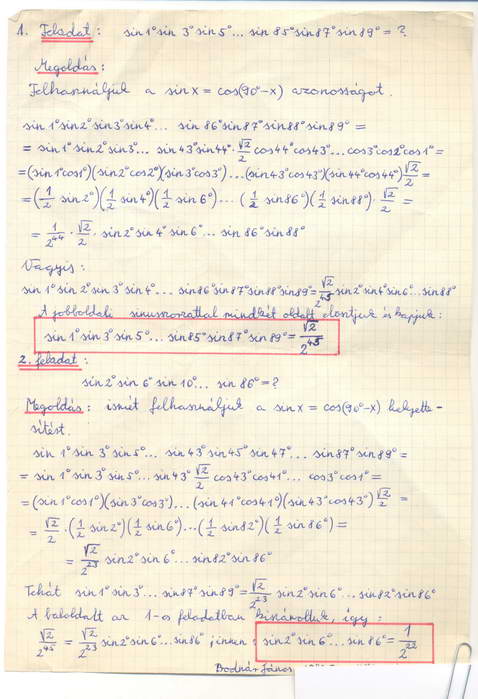 1. Feladat: sin1° sin3° sin5°... sin85° sin87° sin89° = ?
Megoldás:
Felhasználjuk a sinx = cos(90°-x) azonosságot.
sin1° sin2° sin3° sin4°... sin86° sin87° sin88° sin89° =
= sin1° sin2° sin3°... sin43° sin44° · √2/2 cos44° cos43°... cos3° cos2° cos1° =
= (sin1° cos1°)(sin2° cos2°)(sin3° cos3°)...(sin43° cos43°)(sin44° cos44°) √2/2 =
= (1/2 sin2°)(1/2 sin4°)(1/2 sin6°)... (1/2 sin86°)(1/2 sin88°) · √2/2 =
= 1/2^44 · √2/2 · sin2° sin4° sin6°... sin86° sin88°
Vagyis:
sin1° sin2° sin3° sin4°... sin86° sin87° sin88° sin89° = √2/2^45 sin2° sin4° sin6°...sin88°
A jobboldali sinusszorzattal mindkét oldalt elosztjuk és kapjuk:
sin1° sin3° sin5°... sin85° sin87° sin89° = √2/2^45
2. feladat:
sin2° sin6° sin10°... sin86° = ?
Megoldás: ismét felhasználjuk a sinx = cos(90°-x) helyette-
sítést.
sin1° sin3° sin5°... sin43° sin45° sin47°... sin87° sin89° =
= sin1° sin3° sin5°... sin43° √2/2 cos43° cos41°... cos3° cos1° =
= (sin1° cos1°)(sin3° cos3°)...(sin41° cos41°)(sin43° cos43°) √2/2 =
= √2/2 · (1/2 sin2°)(1/2 sin6°)...(1/2 sin82°)(1/2 sin86°) =
= √2/2^23 sin2° sin6°... sin82° sin86°
Tehát sin1° sin3°... sin87° sin89° = √2/2^23 sin2° sin6°... sin82° sin86°
A baloldalt az 1-es feladatban kiszámoltuk, így:
√2/2^45 = √2/2^23 sin2° sin6°... sin86° ; innen: sin2° sin6°... sin86° = 1/2^22
Bodnár János,